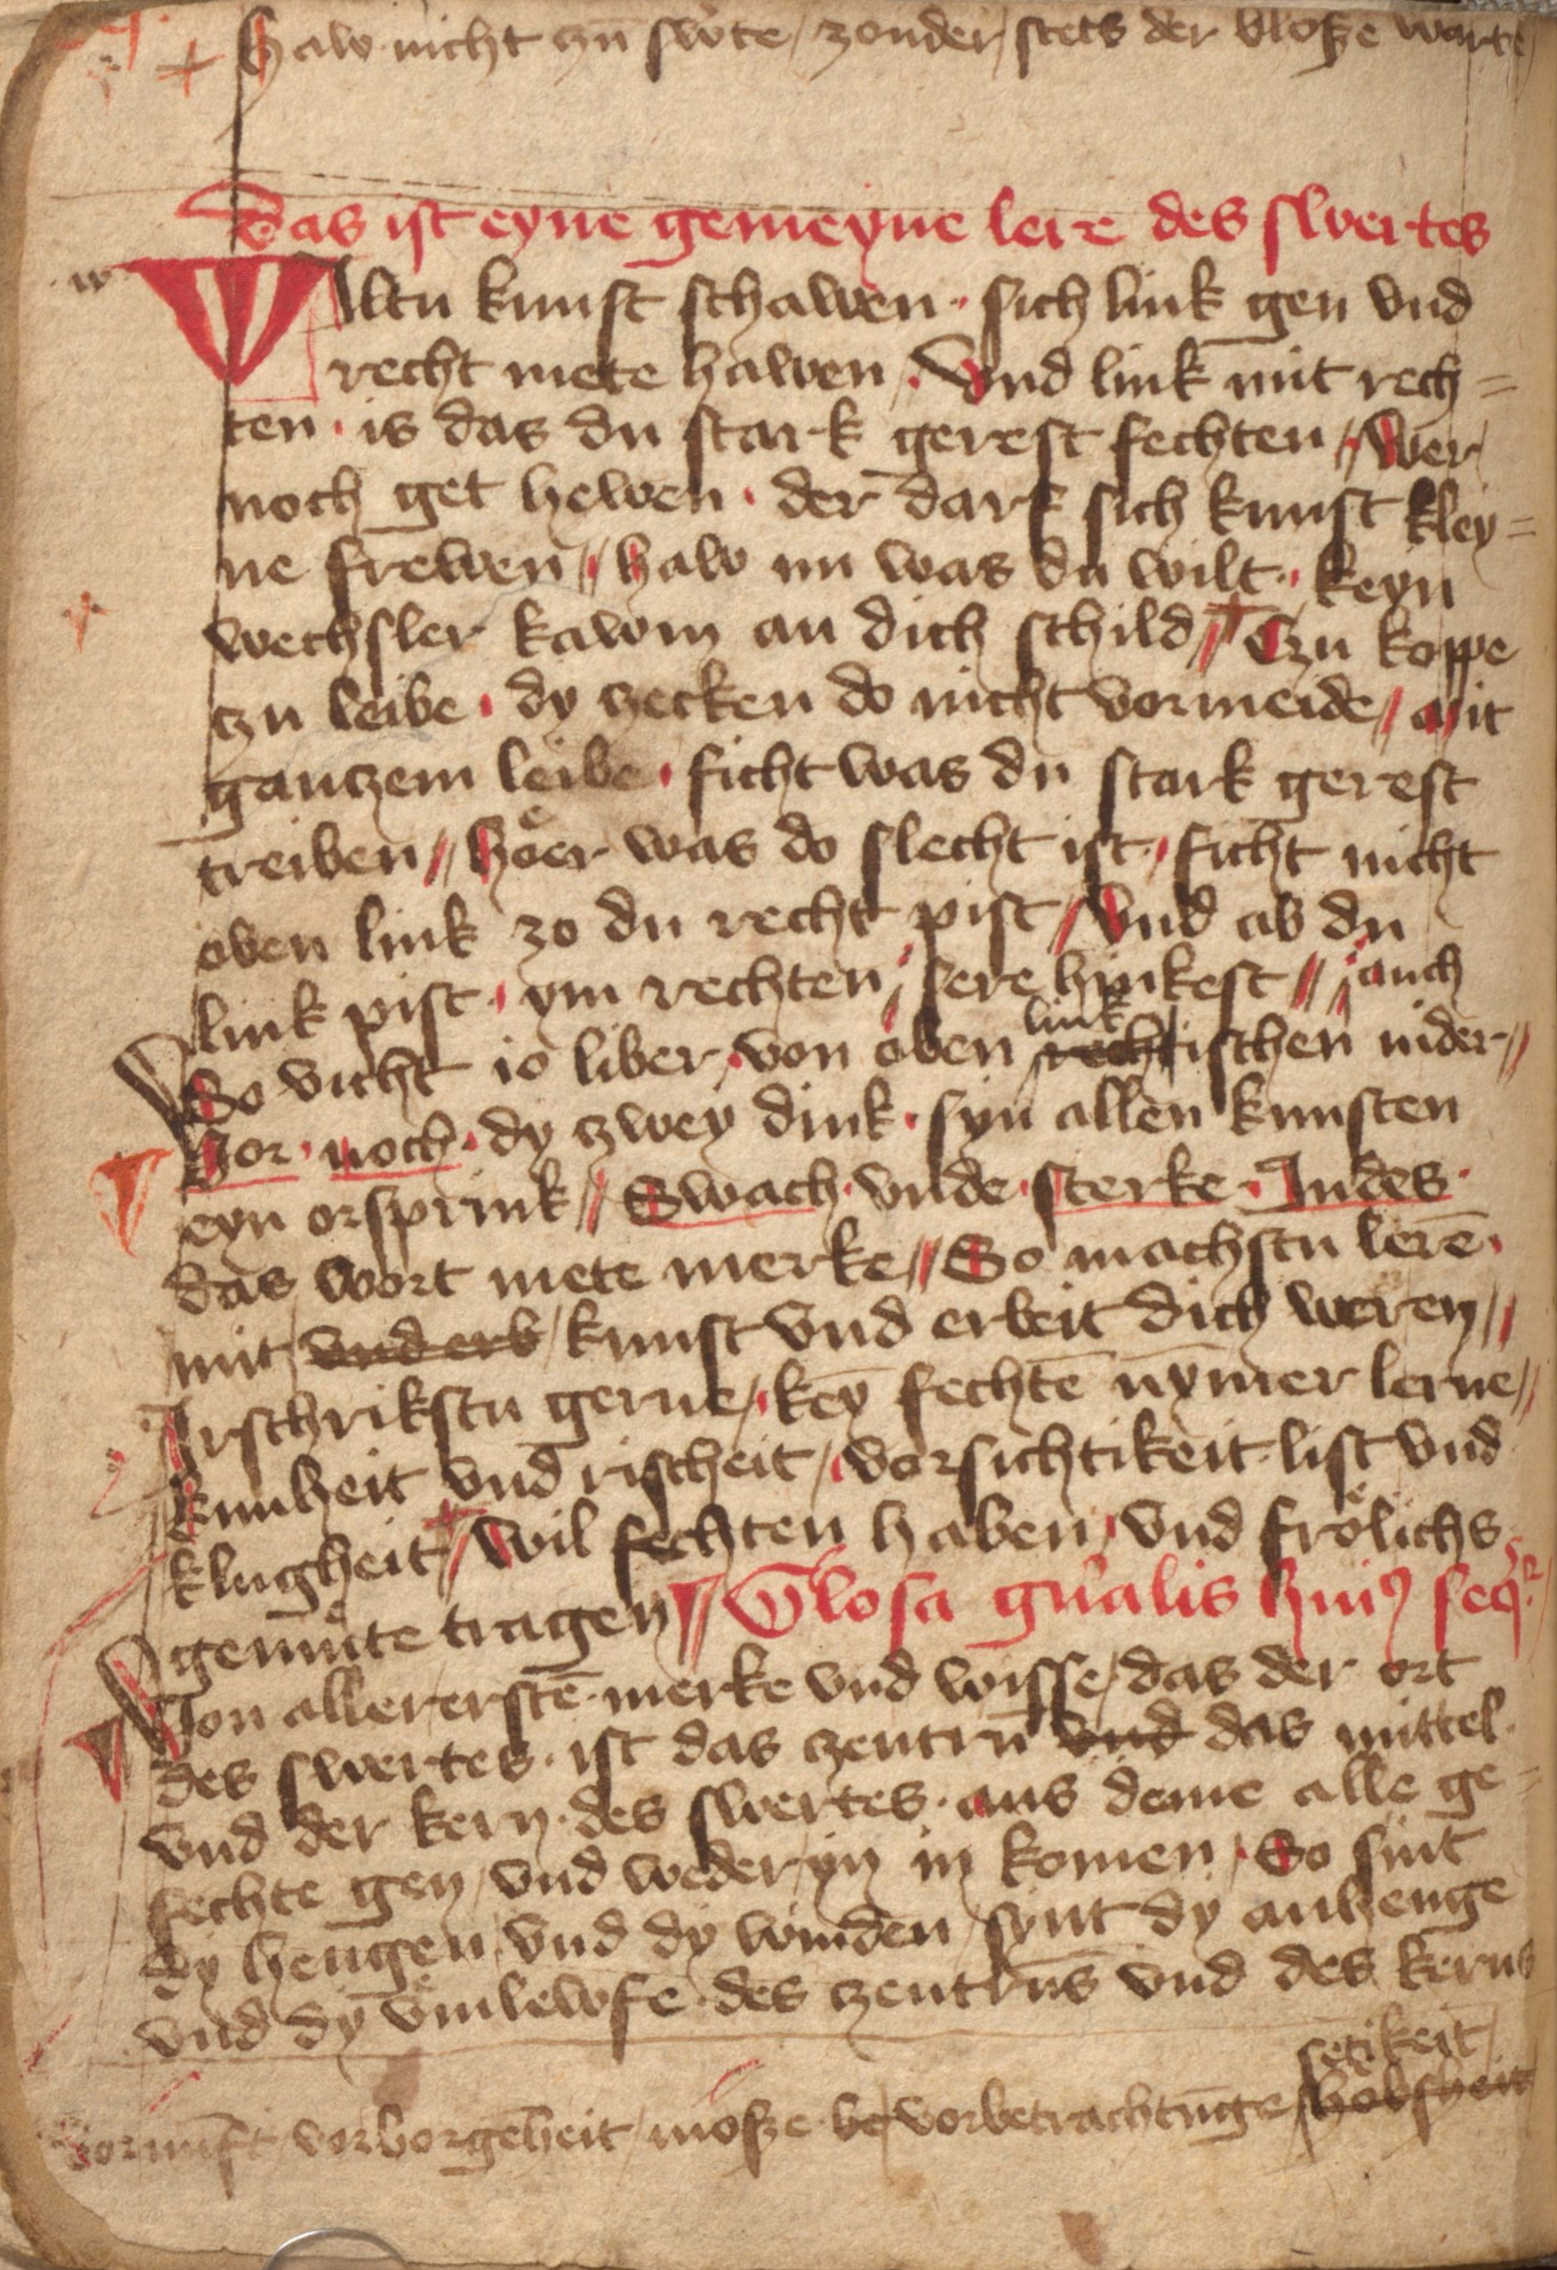 haw nicht czu̅ swte / zonder / stets der blosze warte /
Das ist eyne gemeyne lere des swertes
Wiltu kunst schawen · sich link gen vnd
recht mete hawen / Vnd link mit rech=
ten · is das du stark gerest fechten // Wer
noch get hewen · der darf sich kunst kley=
ne frewen // haw nu was du wilt · keyn
wechsler kawm an dich schild // Czu koppe
czu leibe · dy zecken do nicht vormeide / Mit
ganczem leibe · ficht was du stark gerest
treiben // höer was do slecht ist · ficht nicht
oben link zo du recht pist / Vnd ab du
link pist · ym rechten / sere hinkest // auch
link
So vicht io liber / von oben recht ischen nider //
Vor · noch · dy zwey dink · syn allen kunsten
eyn orsprink // Swach · vnde · sterke · Indes ·
das wort mete merke // So machstu lere̅
mit / vnd erb / kunst vnd erbeit dich weren //
Irschrikstu gerne / key̅ fechte̅ nymer lerne //
kunheit vnd rischeit / vorsichtikeit · list vnd
klugheit / Wil fechten haben / vnd frölichs
gemüte tragen // Glosa gn̅alis huiꝰ seqr
Von allererste̅ · merke vnd wisse / das der ort
des swertes · ist das zentru̅ vnd das mittel
vnd der kern · des swertes · aus deme alle ge=
fechte gen / vnd weder yn in komen / So sint
dy hengen · vnd dy winden / synt dy anhenge
vnd dy vmlewfe · des zentru̅s vnd des kerns
setikeit /
vornu̅ft vorborge̅heit / mosze be / vorbetrachtu̅ge / hobscheit